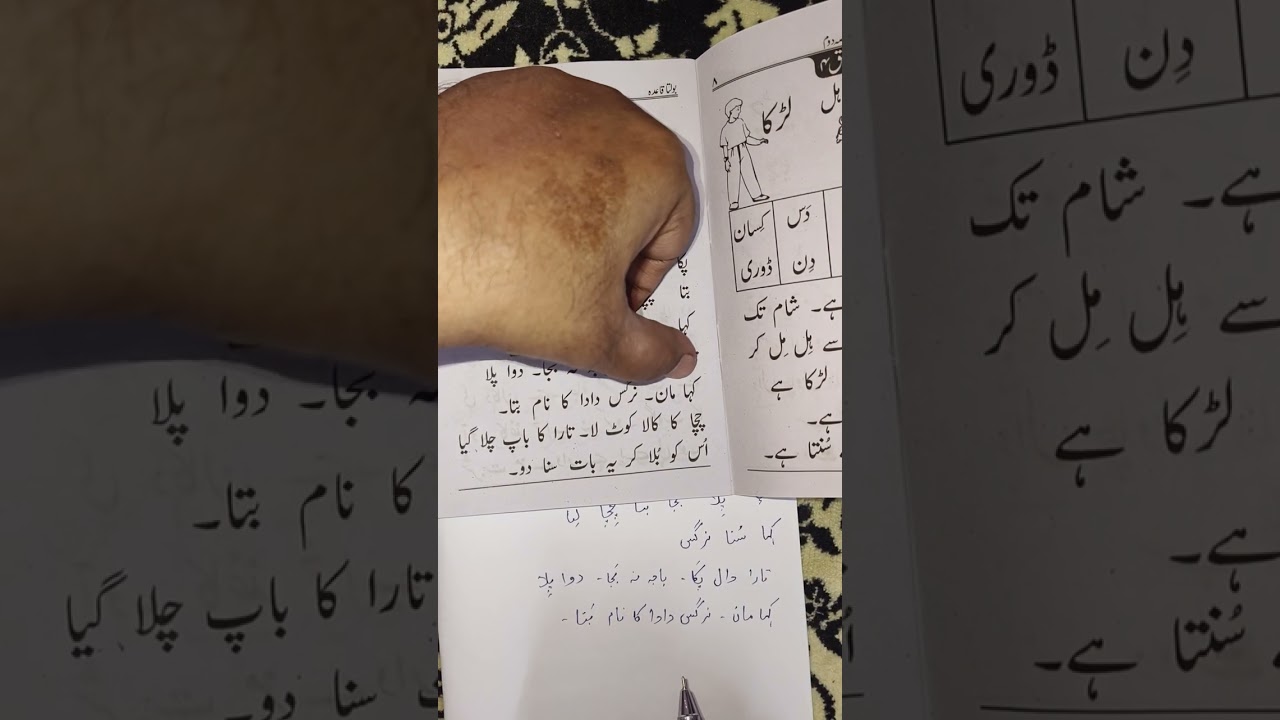 بولتا قاعدہ
پکا
بتا
کہا
بجا۔ دوا پلا
کہا مان۔ نرگس دادا کا نام بتا۔
چچا کا کالا کوٹ لا۔ تارا کا باپ چلا گیا
اُس کو بُلا کر یہ بات سنا دو۔
دوم
۸
لڑکا
دَس کِسان
دِن ڈوری
ہے۔ شام تک
سے ہِل مِل کر
لڑکا ہے
ہے۔
سُنتا ہے۔
پِلا بجا بتا چچا
کہا سُنا نرگس
تارا دال پَکا۔ باجہ نہ بَجا۔ دوا پِلا
کہا مان۔ نرگس دادا کا نام بَتا۔
دِن ڈوری
ہے۔ شام تک
سے ہِل مِل کر
لڑکا ہے
ہے۔
سُنتا ہے۔
بجا۔ دوا پلا
کا نام بتا۔
تارا کا باپ چلا گیا
سنا دو۔